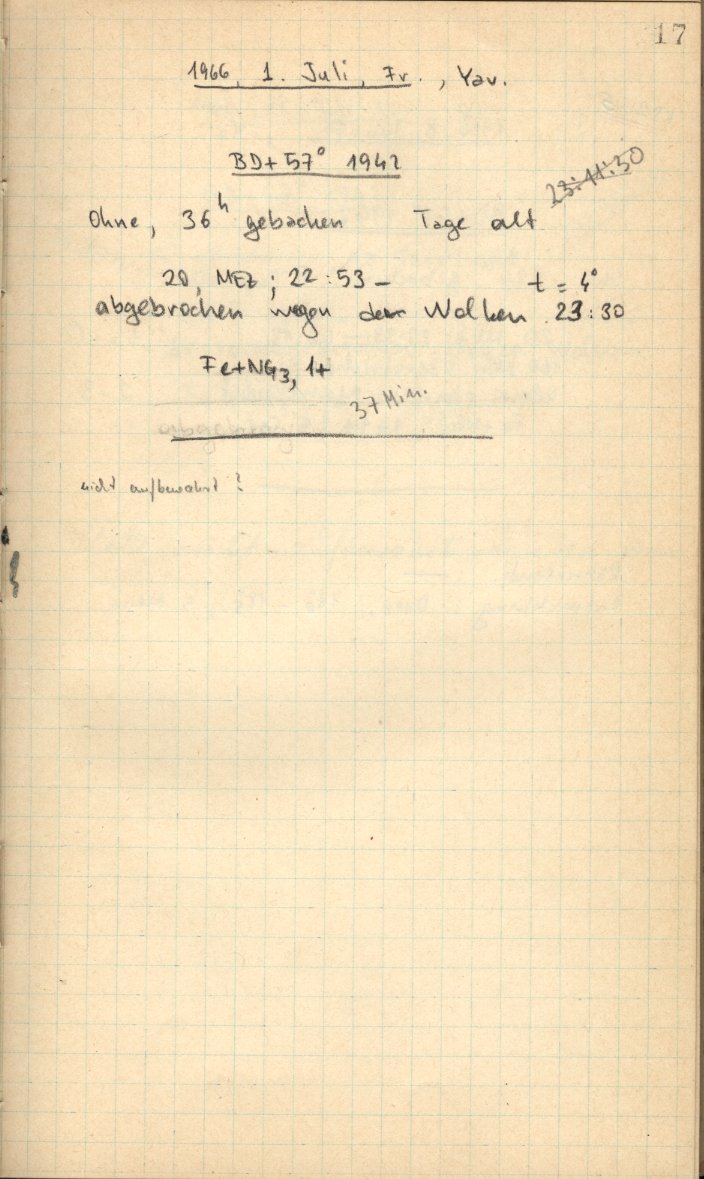 17
1966, 1. Juli, Fr., Yav.
BD+57° 1942
23:11:30
Ohne, 36h gebacken Tage alt
20, MEZ; 22:53 – t = 4°
abgebrochen wegen der Wolken 23:30
Fe+NG3, 1+
37 Min.
nicht aufbewahrt?